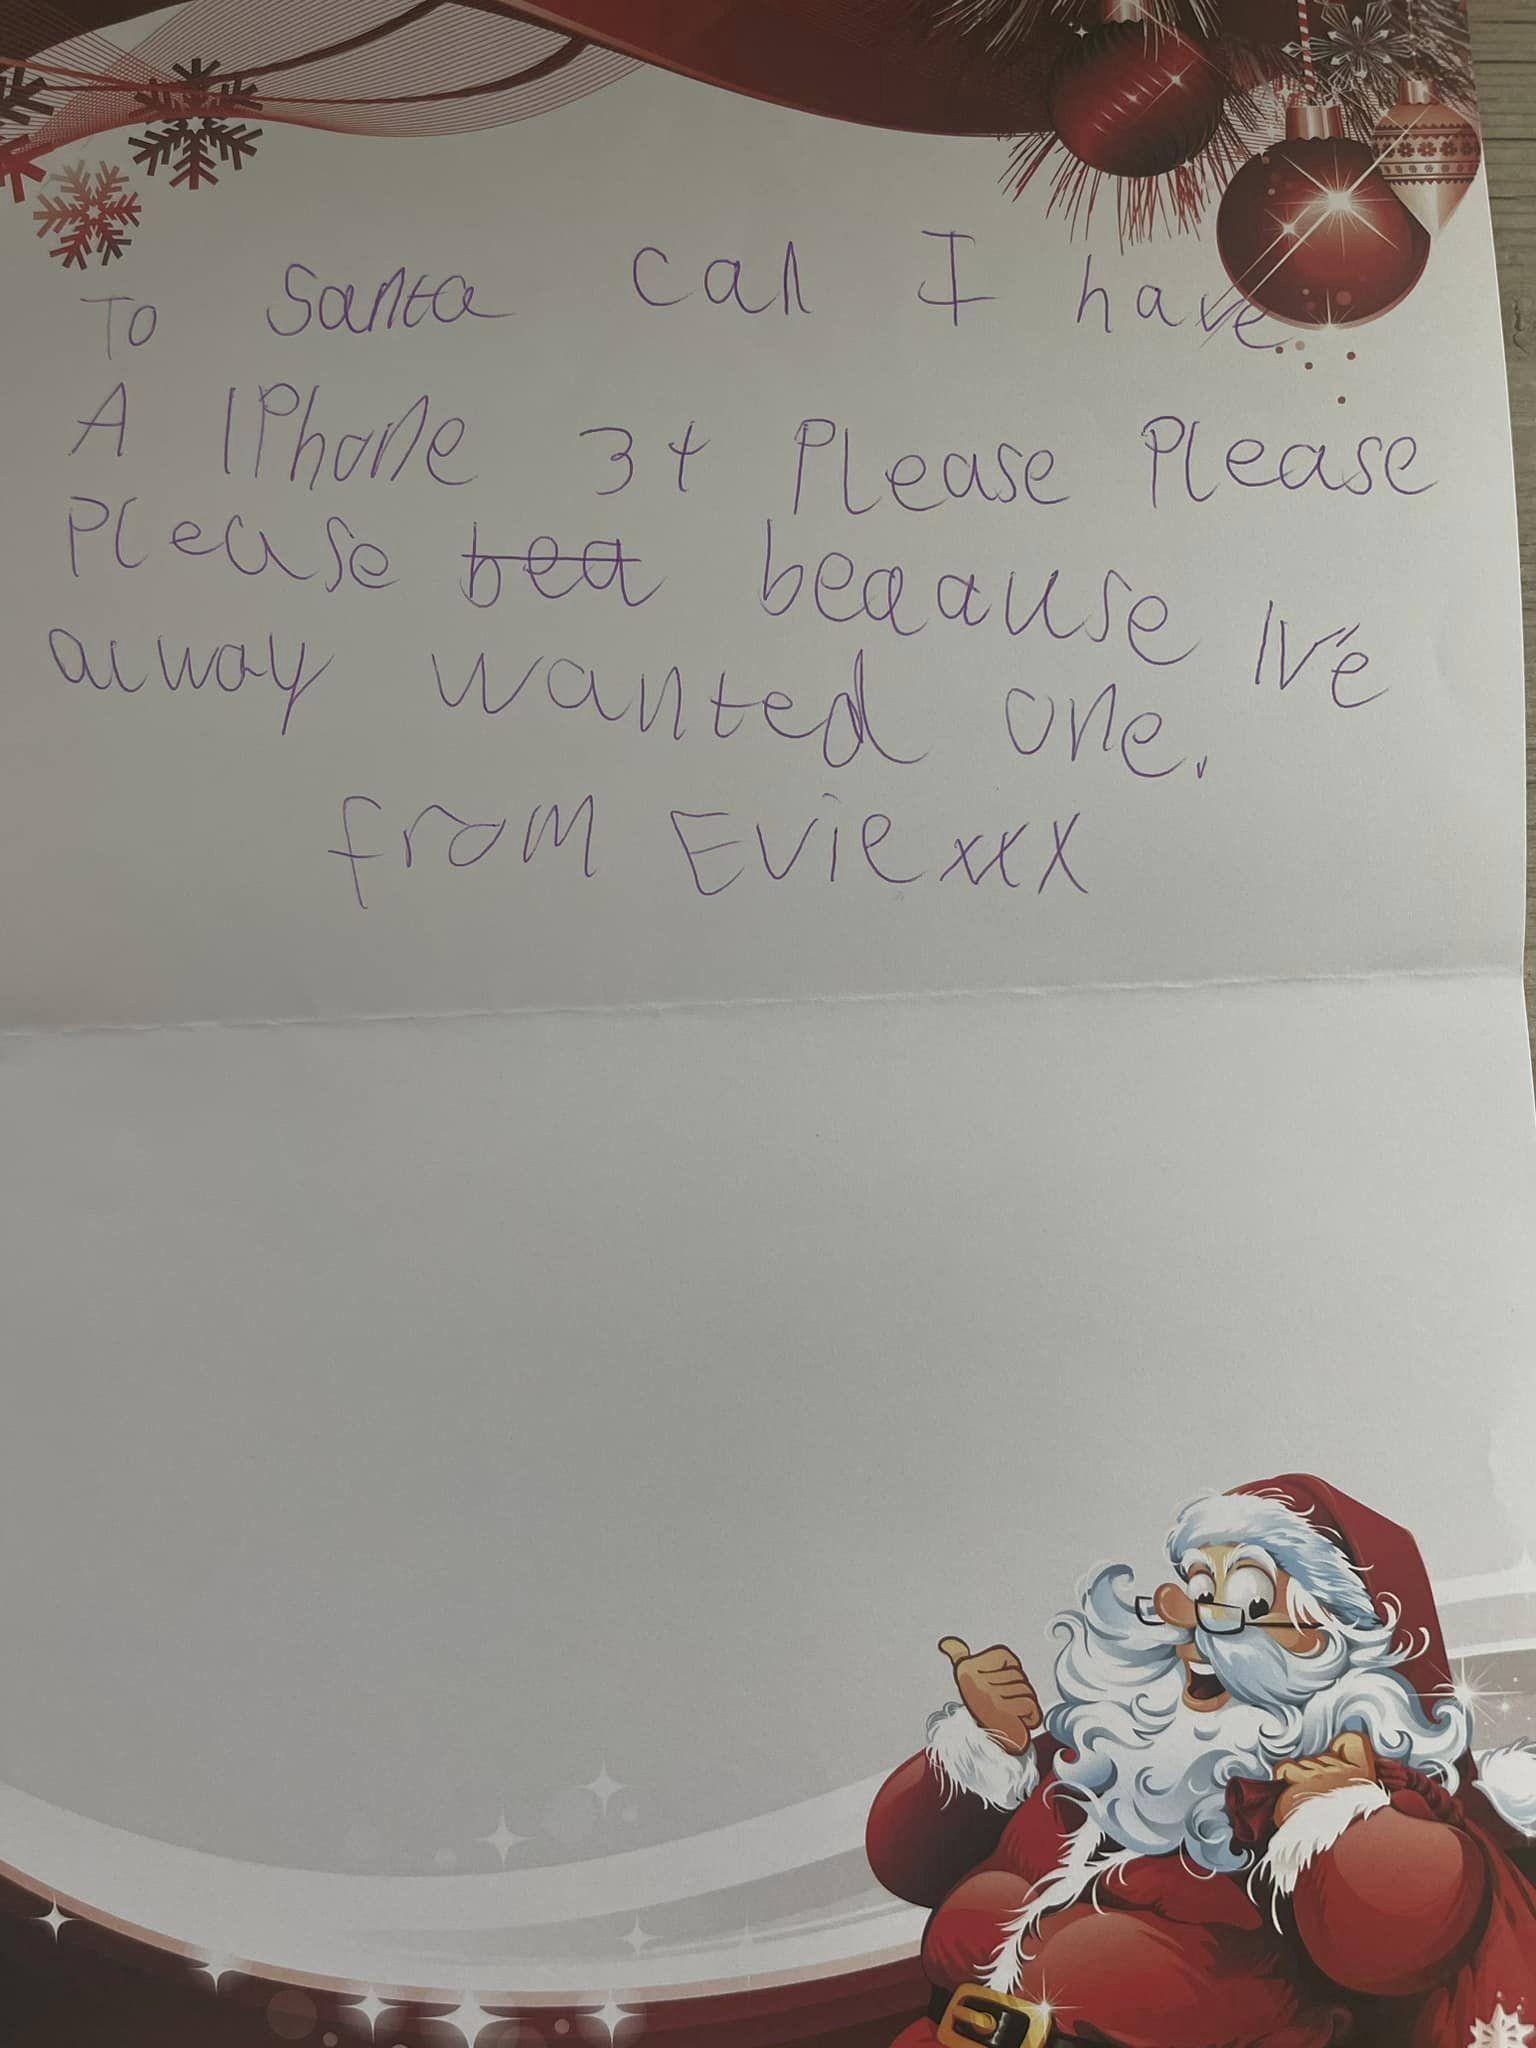 To Santa can I have
A IPhone 3+ Please Please
Please bea beaause Iv'e
alway wanted one.
from Evie xxx